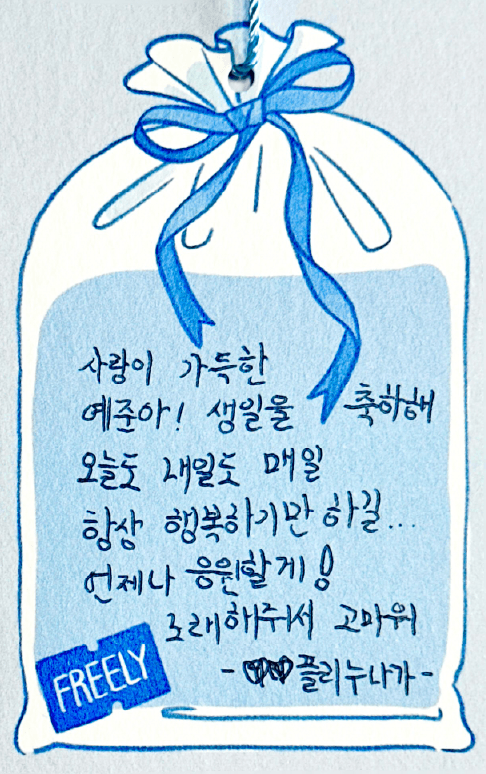 사랑이 가득한
예준아! 생일을 축하해
오늘도 내일도 매일
항상 행복하기만 하길...
언제나 응원할게!
노래해줘서 고마워
-♡♡플리누나가-
FREELY